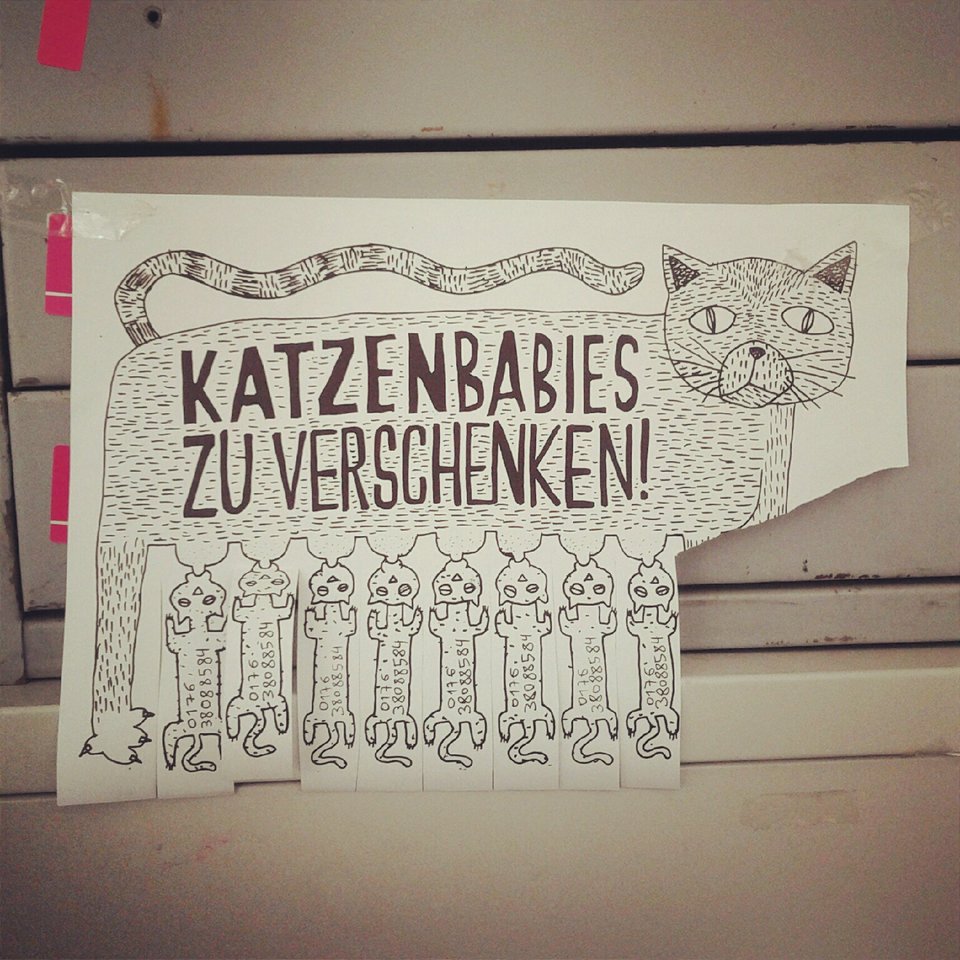 KATZENBABIES
ZU VERSCHENKEN!
0176
38088584
0176
38088584
0176
38088584
0176
38088584
0176
38088584
0176
38088584
0176
38088584
0176
38088584